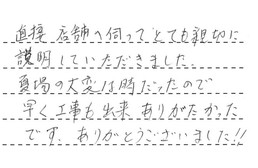 直接 店舗へ伺って とても親切に
説明していただきました
夏場の大変な時だったので
早く工事も出来 ありがたかった
です。ありがとうございました!!